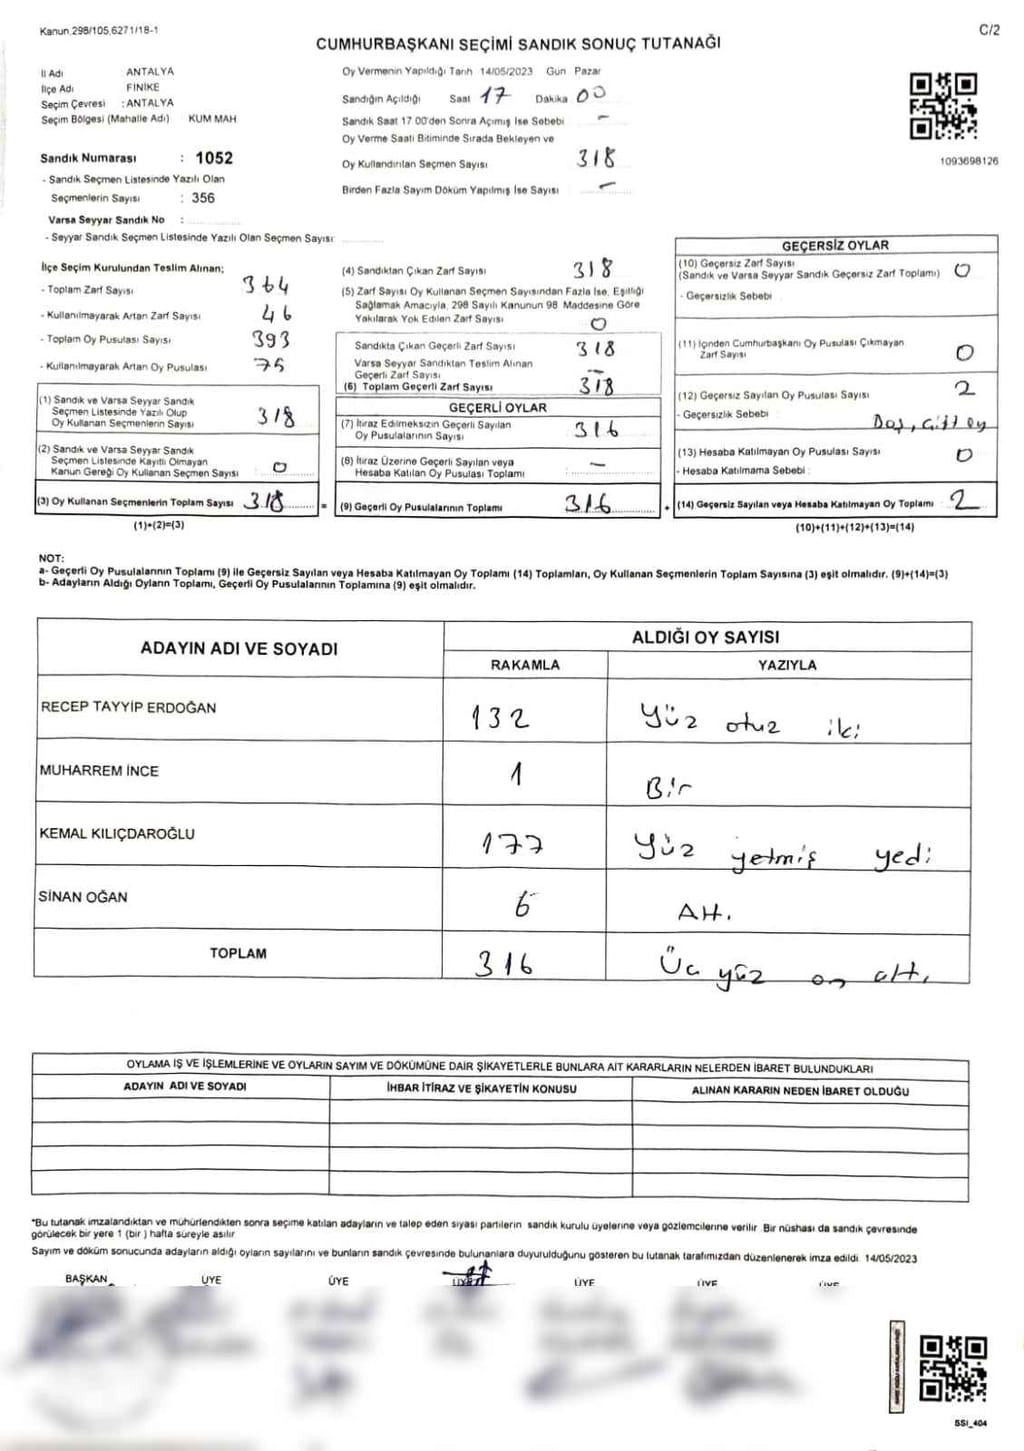 Kanun,298/105,6271/18-1
C/2
CUMHURBAŞKANI SEÇİMİ SANDIK SONUÇ TUTANAĞI
İl Adı ANTALYA
İlçe Adı FİNİKE
Seçim Çevresi : ANTALYA
Seçim Bölgesi (Mahalle Adı) KUM MAH
Sandık Numarası : 1052
- Sandık Seçmen Listesinde Yazılı Olan
Seçmenlerin Sayısı : 356
Varsa Seyyar Sandık No :
- Seyyar Sandık Seçmen Listesinde Yazılı Olan Seçmen Sayısı
Oy Vermenin Yapıldığı Tarih 14/05/2023 Gün Pazar
Sandığın Açıldığı Saat 17 Dakika 00
Sandık Saat 17.00'den Sonra Açımış İse Sebebi -
Oy Verme Saati Bitiminde Sırada Bekleyen ve
Oy Kullandırılan Seçmen Sayısı 318
Birden Fazla Sayım Döküm Yapılmış İse Sayısı -
1093698126
İlçe Seçim Kurulundan Teslim Alınan;
- Toplam Zarf Sayısı 364
- Kullanılmayarak Artan Zarf Sayısı 46
- Toplam Oy Pusulası Sayısı 393
- Kullanılmayarak Artan Oy Pusulası 75
(1) Sandık ve Varsa Seyyar Sandık
Seçmen Listesinde Yazılı Olup
Oy Kullanan Seçmenlerin Sayısı 318
(2) Sandık ve Varsa Seyyar Sandık
Seçmen Listesinde Kayıtlı Olmayan
Kanun Gereği Oy Kullanan Seçmen Sayısı : 0
(3) Oy Kullanan Seçmenlerin Toplam Sayısı 318 =
(1)+(2)=(3)
(4) Sandıktan Çıkan Zarf Sayısı 318
(5) Zarf Sayısı Oy Kullanan Seçmen Sayısından Fazla İse, Eşitliği
Sağlamak Amacıyla, 298 Sayılı Kanunun 98 Maddesine Göre
Yakılarak Yok Edilen Zarf Sayısı 0
Sandıkta Çıkan Geçerli Zarf Sayısı 318
Varsa Seyyar Sandıktan Teslim Alınan
Geçerli Zarf Sayısı
(6) Toplam Geçerli Zarf Sayısı 318
GEÇERLİ OYLAR
(7) İtiraz Edilmeksizin Geçerli Sayılan
Oy Pusulalarının Sayısı 316
(8) İtiraz Üzerine Geçerli Sayılan veya
Hesaba Katılan Oy Pusulası Toplamı : -
(9) Geçerli Oy Pusulalarının Toplamı 316 +
GEÇERSİZ OYLAR
(10) Geçersiz Zarf Sayısı
(Sandık ve Varsa Seyyar Sandık Geçersiz Zarf Toplamı) 0
- Geçersizlik Sebebi
(11) İçinden Cumhurbaşkanı Oy Pusulası Çıkmayan
Zarf Sayısı 0
(12) Geçersiz Sayılan Oy Pusulası Sayısı 2
- Geçersizlik Sebebi Boş, Çift oy
(13) Hesaba Katılmayan Oy Pusulası Sayısı 0
- Hesaba Katılmama Sebebi :
(14) Geçersiz Sayılan veya Hesaba Katılmayan Oy Toplamı 2
(10)+(11)+(12)+(13)=(14)
NOT:
a- Geçerli Oy Pusulalarının Toplamı (9) ile Geçersiz Sayılan veya Hesaba Katılmayan Oy Toplamı (14) Toplamları, Oy Kullanan Seçmenlerin Toplam Sayısına (3) eşit olmalıdır. (9)+(14)=(3)
b- Adayların Aldığı Oyların Toplamı, Geçerli Oy Pusulalarının Toplamına (9) eşit olmalıdır.
ADAYIN ADI VE SOYADI
ALDIĞI OY SAYISI
RAKAMLA YAZIYLA
RECEP TAYYİP ERDOĞAN 132 Yüz otuz iki
MUHARREM İNCE 1 Bir
KEMAL KILIÇDAROĞLU 177 Yüz yetmiş yedi
SİNAN OĞAN 6 Altı
TOPLAM 316 Üç yüz on altı
OYLAMA İŞ VE İŞLEMLERİNE VE OYLARIN SAYIM VE DÖKÜMÜNE DAİR ŞİKAYETLERLE BUNLARA AİT KARARLARIN NELERDEN İBARET BULUNDUKLARI
ADAYIN ADI VE SOYADI İHBAR İTİRAZ VE ŞİKAYETİN KONUSU ALINAN KARARIN NEDEN İBARET OLDUĞU
*Bu tutanak imzalandıktan ve mühürlendikten sonra seçime katılan adayların ve talep eden siyasi partilerin sandık kurulu üyelerine veya gözlemcilerine verilir Bir nüshası da sandık çevresinde
görülecek bir yere 1 (bir) hafta süreyle asılır
Sayım ve döküm sonucunda adayların aldığı oyların sayılarını ve bunların sandık çevresinde bulunanlara duyurulduğunu gösteren bu tutanak tarafımızdan düzenlenerek imza edildi. 14/05/2023
BAŞKAN ÜYE ÜYE ÜYE ÜYE ÜYE ÜYE
SSI_404